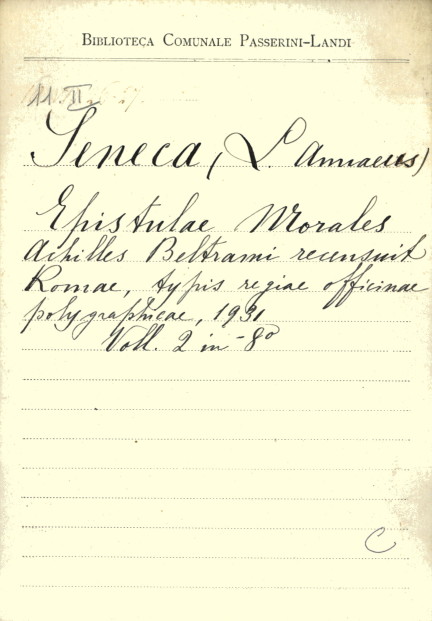 BIBLIOTECA COMUNALE PASSERINI-LANDI
11. II
Seneca, (L. Annaeus)
Epistulae Morales
Achilles Beltrami recensuit
Romae, typis regiae officinae
polygraphicae, 1931
Voll. 2 in-8º
C